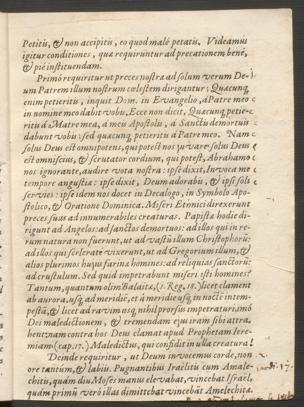 Petitis, & non accipitis, eo quod malè petatis. Videamus
igitur conditiones, qua requiruntur ad precationem benè,
& piè instituendam.
Primò requiritur ut preces nostra ad solum verum De-
um Patrem illum nostrum cœlestem dirigantur: Quæcunq,
enim petieritis, inquit Dom. in Evangelio, à Patre meo
in nomine meo dabit vobis. Ecce non dicit, Quæcunq petie-
ritis à Matre mea, à meis Apostolis, à Sanctis demortuis
dabunt vobis: sed quæcunq petieritis à Patre meo. Nam
solus Deus est omnipotens, qui potest nos juvare: solus Deus
est omniscius, & scrutator cordium, qui potest, Abrahamo
nos ignorante, audire vota nostra: ipse dixit, Invoca me
tempore angustiæ: ipse dixit, Deum adorabis, & ipsi soli
servies: ipse idem nos docet in Decalogo, in Symbolo Apo-
stolico, & Oratione Dominica. Miseri Etonici direxerunt
preces suas ad innumerabiles creaturas. Papistæ hodie di-
rigunt ad Angelos: ad sanctos demortuos: ad illos qui in re-
rum natura non fuerunt, ut ad vastũ illum Christophorũ:
ad illos qui scelerate vixerunt, ut ad Gregorium illum, &
alios plurimos hujus farinæ homines: ad reliquias sanctorũ:
ad crustulum. Sed quid impetrabunt miseri isti homines?
Tantum, quantum olim Balaitæ, (1. Reg. 18.) licet clament
ab aurora, usq ad meridiē, et à meridie usq in noctē intem-
pestā, & licet ad ravim usq, nihil prorsus impetrarunt: imò
Dei maledictionem, & tremendam ejus iram sibi attra-
hent: nam contra hos Deus clamat apud Prophetam Iere-
miam (cap. 17.) Maledictus, qui confidit in ulla creatura!
Deinde requiritur, ut Deum invocemus corde, non
ore tantum, & labiis. Pugnantibus Israelitis cum Amale-
chitis, quam diu Moses manus elevabat, vincebat Israel,
quam primũ verò illas dimittebat vincebat Amelechita.